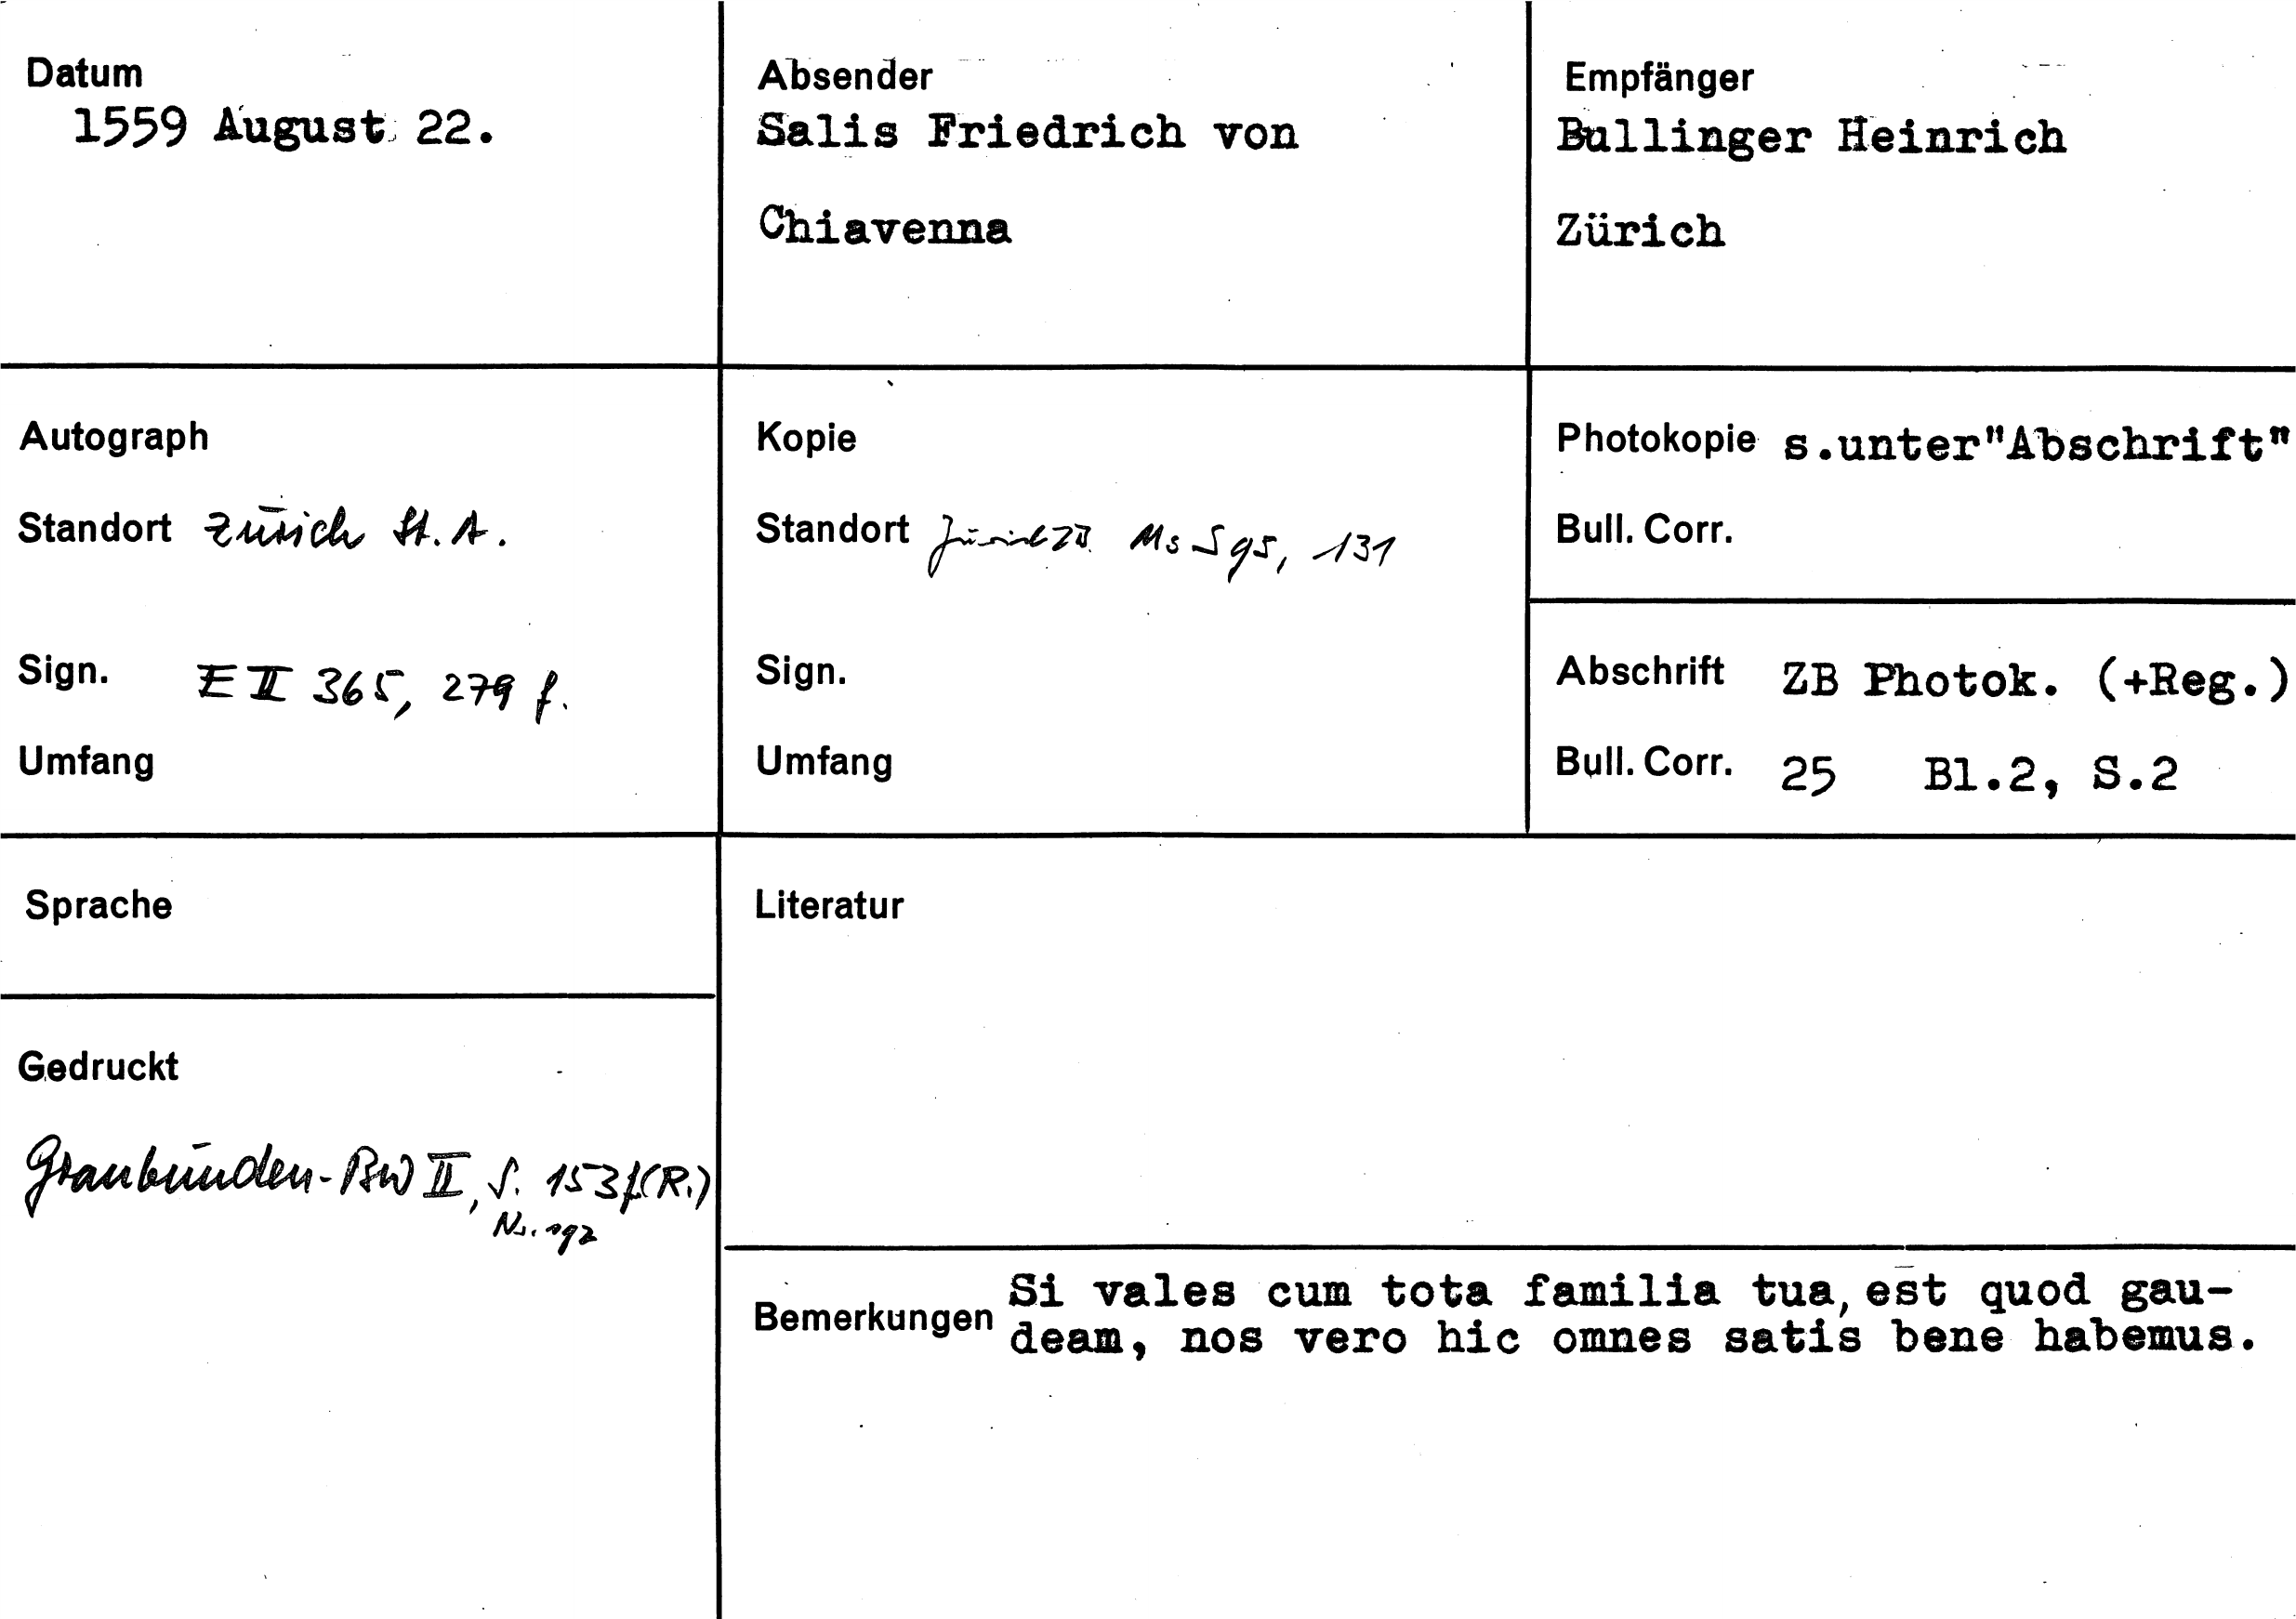 Datum
1559 August 22.
Absender
Salis Friedrich von
Chiavenna
Empfänger
Bullinger Heinrich
Zürich
Autograph
Standort Zürich St. A.
Sign. E II 365, 279 f.
Umfang
Kopie
Standort Zürich ZB Ms S 95, 131
Sign.
Umfang
Photokopie s.unter"Abschrift"
Bull. Corr.
Abschrift ZB Photok. (+Reg.)
Bull. Corr. 25 Bl.2, S.2
Sprache
Gedruckt
Graubünden-BW II, S. 153f(R.)
Nr. 192
Literatur
Bemerkungen
Si vales cum tota familia tua, est quod gau-
deam, nos vero hic omnes satis bene habemus.